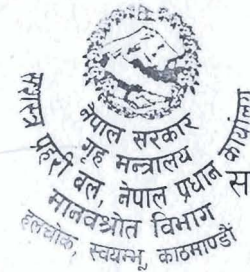 नेपाल सरकार
गृह मन्त्रालय
सशस्त्र प्रहरी बल, नेपाल प्रधान कार्यालय
मानवश्रोत विभाग
हलचोक, स्वयम्भू, काठमाण्डौं